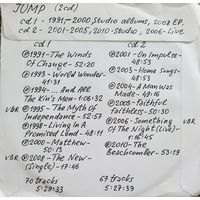 JUMP (2cd)
cd 1 - 1991-2000, Studio albums, 2008 EP.
cd 2 - 2001-2005, 2010 - Studio, 2006 - Live
cd 1
℗ 1991 - The Winds Of Change - 52:20
℗ 1993 - World Wonder - 41:31
℗ 1994 - ... And All The King's Men - 1:06:32
VBR ℗ 1995 - The Myth Of Independence - 52:57
℗ 1998 - Living In A Promised Land - 48:11
℗ 2000 - Matthew - 50:13
VBR ℗ 2008 - The New - (Single) - 17:46
70 tracks
5:29:33
cd 2
℗ 2001 - On Impulse - 48:53
℗ 2003 - Home Songs - 48:53
℗ 2004 - A Man Was Made - 49:16
℗ 2005 - Faithful Faithless - 50:30
VBR ℗ 2006 - Something Of The Night (Live) - 1:16:45
℗ 2010 - The Beachcomber - 53:19
67 tracks
5:27:39